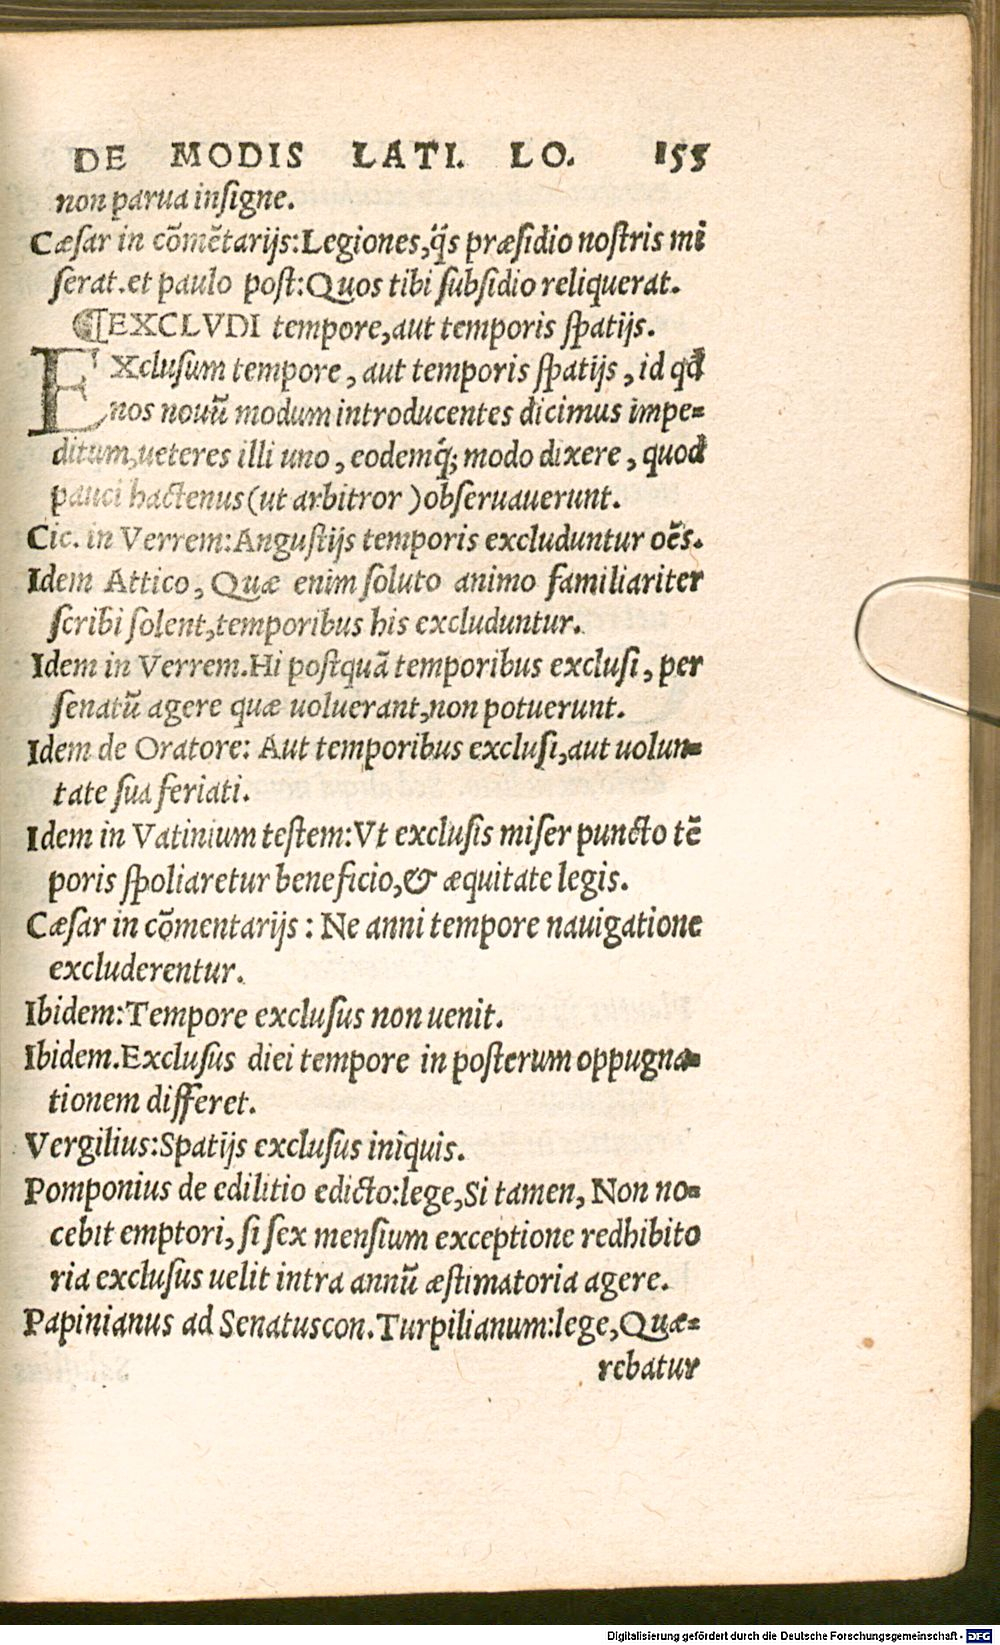 DE MODIS LATI. LO. 155
non parua inſigne.
Cæſar in cōmētarijs:Legiones,q̃s præſidio noſtris mi
ſerat.et paulo poſt:Quos tibi ſubſidio reliquerat.
¶EXCLVDI tempore,aut temporis ſpatijs.
EXcluſum tempore, aut temporis ſpatijs, id qd
nos nouū modum introducentes dicimus impe=
ditum,ueteres illi uno, eodemq́; modo dixere, quod
pauci hactenus (ut arbitror) obſeruauerunt.
Cic. in Verrem:Anguſtijs temporis excluduntur oēs.
Idem Attico, Quæ enim ſoluto animo familiariter
ſcribi ſolent,temporibus his excluduntur.
Idem in Verrem.Hi poſtquā temporibus excluſi, per
ſenatū agere quæ uoluerant,non potuerunt.
Idem de Oratore: Aut temporibus excluſi,aut uolun=
tate ſua feriati.
Idem in Vatinium teſtem:Vt excluſis miſer puncto tē
poris ſpoliaretur beneficio,& æquitate legis.
Cæſar in cōmentarijs: Ne anni tempore nauigatione
excluderentur.
Ibidem:Tempore excluſus non uenit.
Ibidem.Excluſus diei tempore in poſterum oppugna=
tionem differet.
Vergilius:Spatijs excluſus iniquis.
Pomponius de edilitio edicto:lege,Si tamen, Non no=
cebit emptori, ſi ſex menſium exceptione redhibito
ria excluſus uelit intra annū æſtimatoria agere.
Papinianus ad Senatuscon.Turpilianum:lege,Quæ=
rebatur
Digitalisierung gefördert durch die Deutsche Forschungsgemeinschaft - DFG